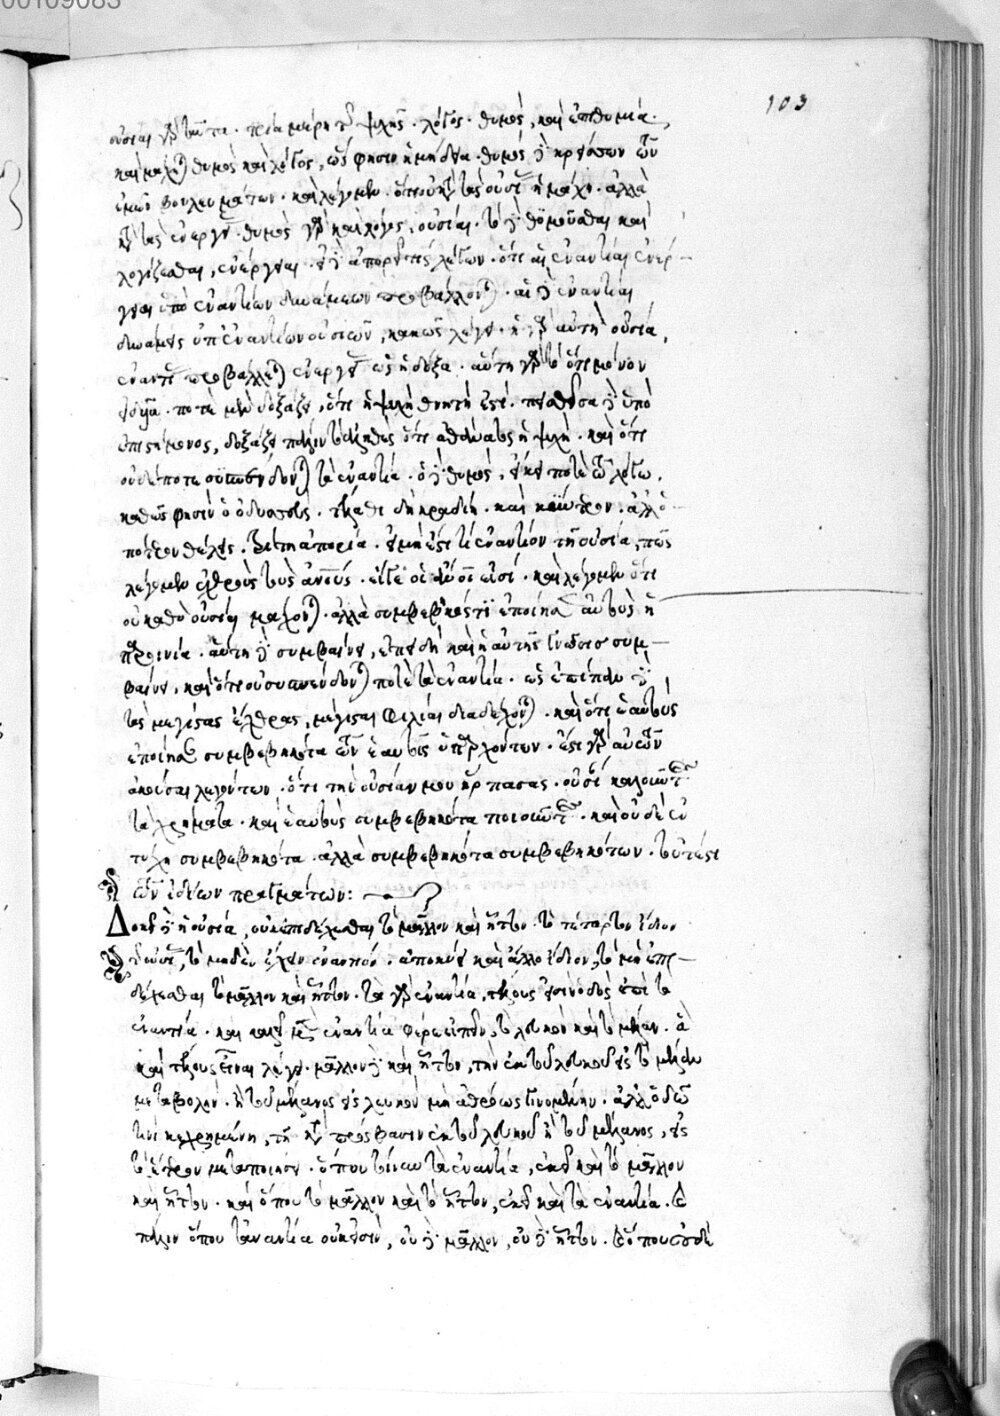 00109083
103
οὐσίαι γὰρ ταῦτα. τρία μέρη τῆς ψυχῆς. λόγος. θυμός, καὶ ἐπιθυμία.
καὶ μάχεται θυμὸς καὶ λόγος, ὥς φησιν ἡ μήδεια. θυμὸς δὲ κρείσσων τῶν
ἐμῶν βουλευμάτων. καὶ λέγομεν. ὅτι οὐ κατὰ τὰς οὐσίας ἡ μάχη. ἀλλὰ
κατὰ τὰς ἐνεργείας. θυμὸς γὰρ καὶ λόγος, οὐσίαι. τὸ δὲ θυμοῦσθαι καὶ
λογίζεσθαι, ἐνέργειαι. οἱ δὲ ἀποροῦντες λέγουσιν. ὅτι αἱ ἐναντίαι ἐνέρ-
γειαι ὑπὸ ἐναντίων δυνάμεων προβάλλονται. αἱ δὲ ἐναντίαι
δυνάμεις ὑπ' ἐναντίων οὐσιῶν, κακῶς λέγει. ἡ γὰρ αὐτὴ οὐσία,
ἐναντίας προβάλλεται ἐνεργείας ὡς ἡ δόξα. αὕτη γὰρ
ποτὲ μὲν δοξάζει, ὅτι ἡ ψυχὴ θνητή ἐστι. πεισθεῖσα δὲ ὑπὸ
ἐπιστήμονος, δοξάζει πάλιν τἀληθὲς ὅτι ἀθάνατος ἡ ψυχή. καὶ ὅτι
οὐδέποτε τὰ ἐναντία. ὁ δὲ θυμός, εἴκει ποτὲ τῷ λόγῳ.
καθώς φησιν ὁ ὀδυσσεύς. τέτλαθι δὴ κραδίη. καὶ κύντερον. ἄλλο
πότερον θέλεις. ἔστι τι ἀπορία. εἰ μὴ ἔστι τι ἐναντίον τῇ οὐσίᾳ, πῶς
λέγομεν ἐχθροὺς τοὺς ἀνθρώπους. εἴτε οἱ αὐτοί εἰσι. καὶ λέγομεν ὅτι
οὐ καθὸ οὐσίαι μάχονται. ἀλλὰ συμβεβηκός τι ἐποίησεν αὐτοὺς
αὕτη δὲ συμβαίνει, ἐπειδὴ καὶ ἡ αὐτῆς γνῶσις συμ-
βαίνει, καὶ ὅτι οὐ ποτὲ τὰ ἐναντία. ὡς ἐπίπαν δὲ
τὰς μεγίστας ἔχθρας, μέγισται φιλίαι διαδέχονται. καὶ ὅτι ἑαυτοὺς
ἐποίησαν συμβεβηκότα τῶν ἑαυτοῖς ὑπαρχόντων. ἔστι γὰρ αὐτῶν
ἀκοῦσαι λεγόντων. ὅτι τὴν οὐσίαν μου ἥρπασας. οὐσίαν καλοῦντες
τὰ χρήματα. καὶ ἑαυτοὺς συμβεβηκότα ποιοῦντες. καὶ οὐδὲ ἐν
τύχῃ συμβεβηκότα. ἀλλὰ συμβεβηκότα συμβεβηκότων. τουτέστι
τῶν ἰδίων πραγμάτων:
Δοκεῖ δὲ ἡ οὐσία, οὐκ ἐπιδέχεσθαι τὸ μᾶλλον καὶ ἧττον. τὸ τέταρτον ἴδιον
τῆς οὐσίας, τὸ μηδὲν ἔχειν ἐναντίον. ἀποκλείει καὶ ἄλλο ἴδιον, τὸ μὴ ἐπι-
δέχεσθαι τὸ μᾶλλον καὶ ἧττον. τὰ γὰρ ἐναντία, τῆς εἰς ὁδοὺς ἐπὶ τὰ
ἐναντία. καὶ ἐναντία φέρε εἰπεῖν, τὸ λευκὸν καὶ τὸ μέλαν. ἃ
καὶ εἶναι λέγει. μᾶλλον δὲ καὶ ἧττον, τὴν ἐκ τοῦ λευκοῦ εἰς τὸ μέλαν
μεταβολήν. ἢ τοῦ μέλανος εἰς λευκὸν μὴ ἀθρόως γινομένην. ἀλλ' ὁδῷ
τινὶ κεχρημένη, τῇ κατὰ πρόσβασιν ἐκ τοῦ λευκοῦ ἢ τοῦ μέλανος, εἰς
τὸ ἕτερον μεταποιήσει. ὅπου τοίνυν τὰ ἐναντία, ἐκεῖ καὶ τὸ μᾶλλον
καὶ ἧττον. καὶ ὅπου τὸ μᾶλλον καὶ τὸ ἧττον, ἐκεῖ καὶ τὰ ἐναντία. καὶ
πάλιν ὅπου τἀναντία οὐκ εἰσίν, οὐδὲ μᾶλλον, οὐδὲ ἧττον. καὶ ὅπου οὐδὲ